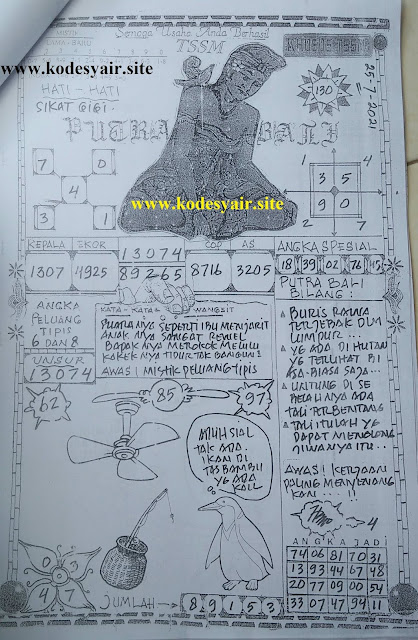 Semoga Usaha Anda Berhasil
TSSM
www.kodesyair.site
25-7-2021
130
HATI - HATI
SIKAT GIGI.
PUTRA BALI
www.kodesyair.site
7 0
4
3 1
1 4
3 5
9 0
2 7
KEPALA EKOR 13074 COP AS ANGKA SPESIAL
1307 4925 89265 8716 3205 18 39 02 76
PUTRA BALI
BILANG :
ANGKA
PELUANG
TIPIS
6 DAN 8
UNSUR
13074
KATA - KATA WANGSIT
ANAK NYA SANGAT REWEL
BAPAK NYA MEROKOK MELULU
KAKEK NYA TIDUR TAK BANGUN2
AWAS ! MISTIK PELUANG TIPIS
62
85
97
TERJEBAK DLM
LUMPUR ...
YG ADA DI HUTAN
YG TERLIHAT BI
ASA-BIASA SAJA...
UNTUNG DI SE
BELAH NYA ADA
TALI TERBENTANG
TALI ITULAH YG
DAPAT MENOLONG
JIWANYA ITU..
ADUH SIAL
TAK ADA
IKAN DI
TAS BAMBU
YG ADA
KAL
AWAS ! KERJAAN
PALING MENYENANG
KAN ---- !!
4
ANGKA JADI
74 06 81 70 31
13 93 44 67 48
20 77 09 00 54
33 07 47 94 11
0 3
4 7
JUMLAH 8 9 1 5 3